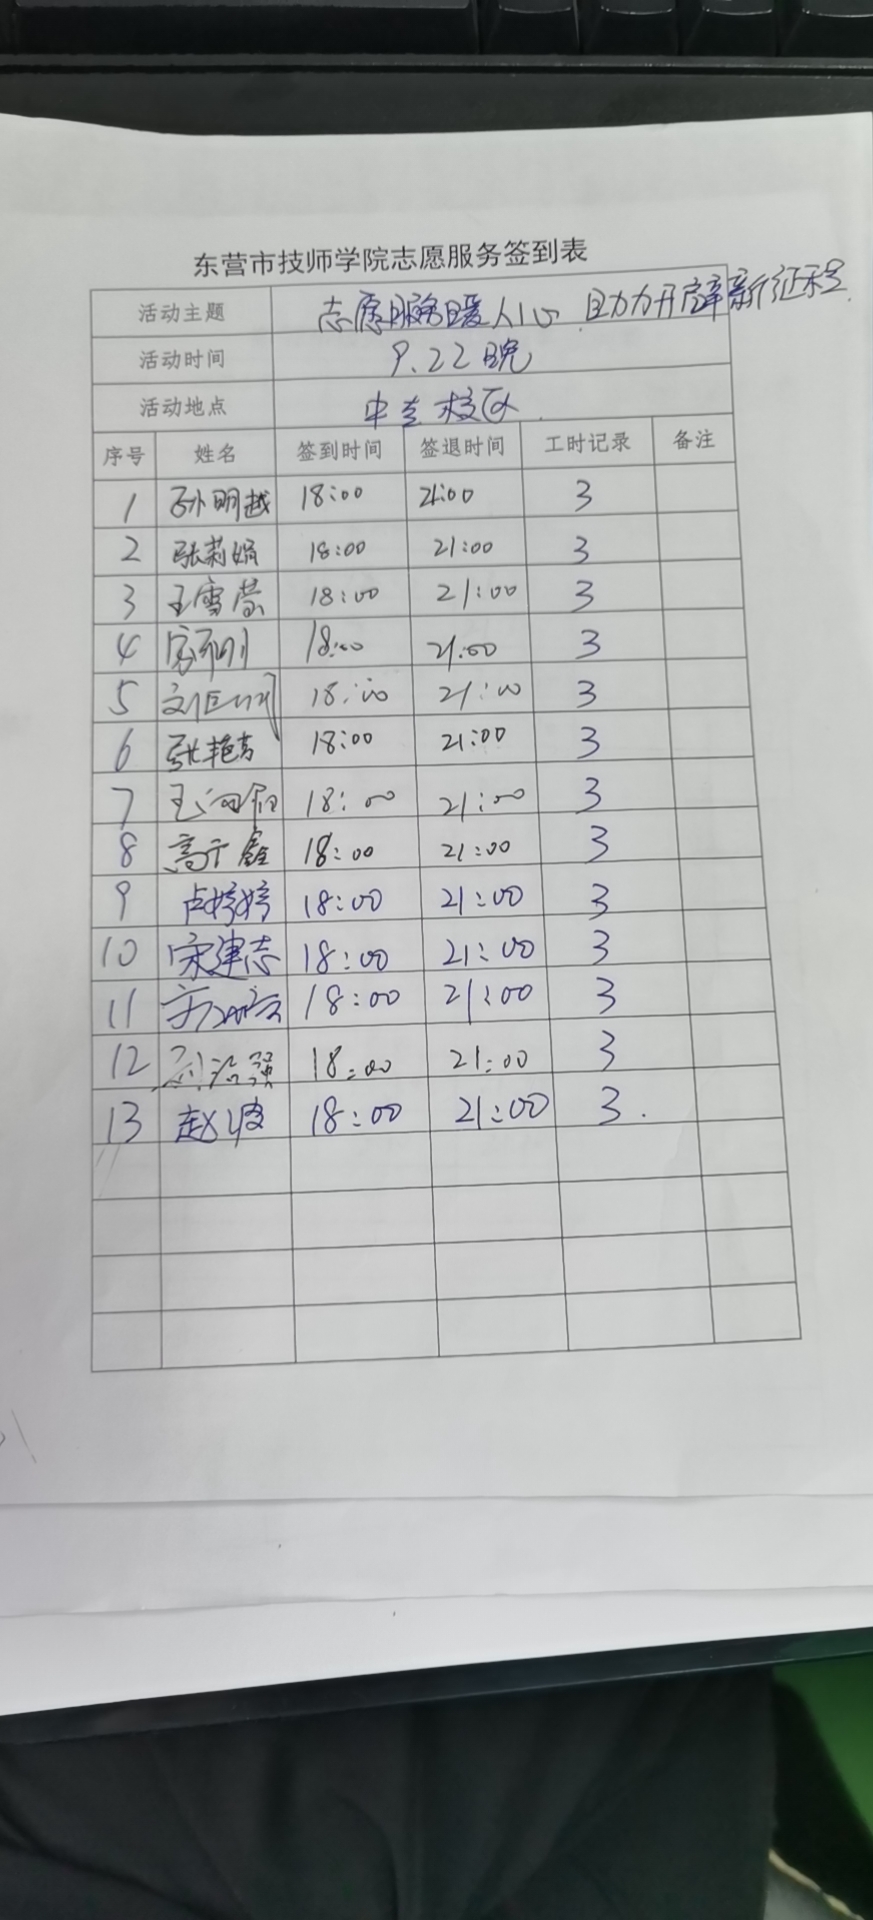 东营市技师学院志愿服务签到表
活动主题 志愿服务暖人心 助力开辟新征程
活动时间 9.22晚
活动地点 中专校区
序号 姓名 签到时间 签退时间 工时记录 备注
1 孙明越 18:00 21:00 3
2 张莉娟 18:00 21:00 3
3 王雪莹 18:00 21:00 3
4 18:00 21:00 3
5 18:00 21:00 3
6 张艳芳 18:00 21:00 3
7 18:00 21:00 3
8 18:00 21:00 3
9 卢婷婷 18:00 21:00 3
10 宋建志 18:00 21:00 3
11 18:00 21:00 3
12 18:00 21:00 3
13 赵波 18:00 21:00 3.